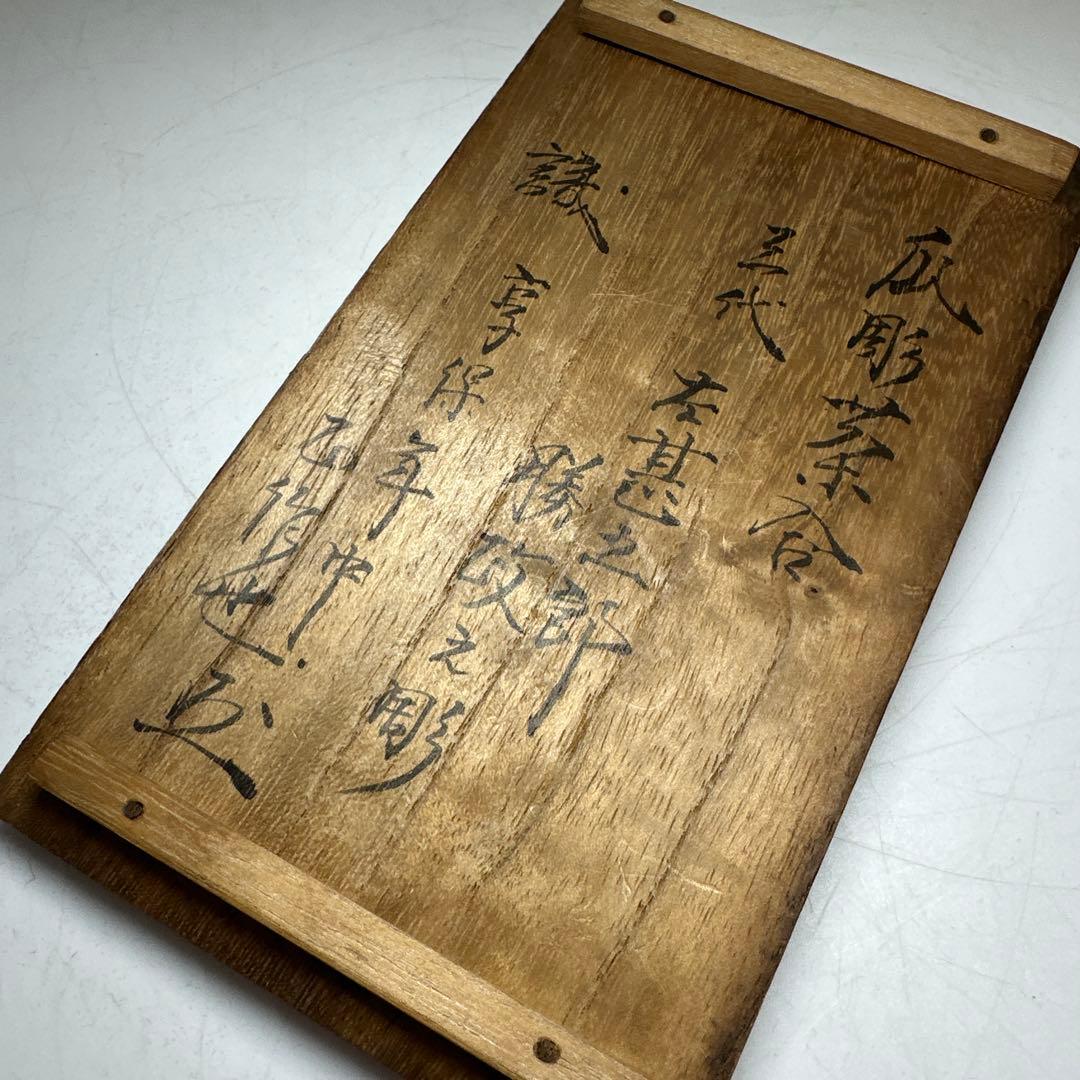 瓜彫茶合
三代 左甚五郎
勝政之彫
識 享保年中
作也